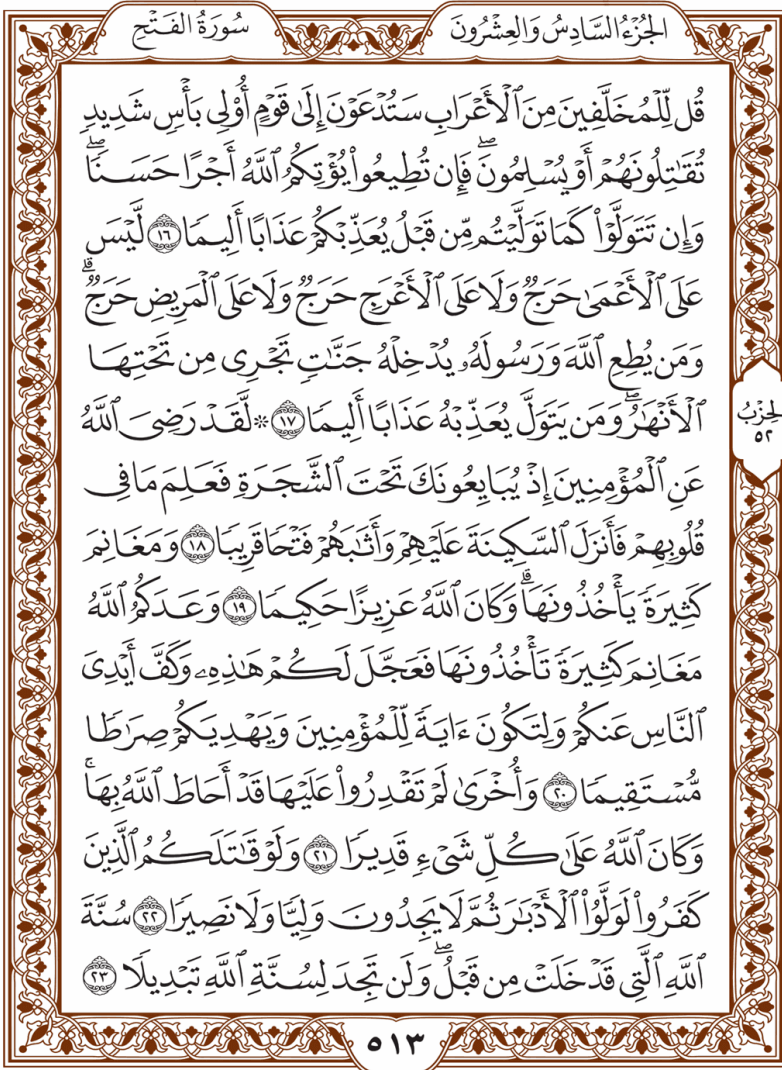 سُورَةُ الفَتْحِ
الجُزْءُ السَّادِسُ وَالعِشْرُونَ
قُل لِّلْمُخَلَّفِينَ مِنَ ٱلْأَعْرَابِ سَتُدْعَوْنَ إِلَىٰ قَوْمٍ أُو۟لِى بَأْسٍ شَدِيدٍ
تُقَـٰتِلُونَهُمْ أَوْ يُسْلِمُونَ ۖ فَإِن تُطِيعُوا۟ يُؤْتِكُمُ ٱللَّهُ أَجْرًا حَسَنًا ۖ
وَإِن تَتَوَلَّوْا۟ كَمَا تَوَلَّيْتُم مِّن قَبْلُ يُعَذِّبْكُمْ عَذَابًا أَلِيمًا ١٦ لَّيْسَ
عَلَى ٱلْأَعْمَىٰ حَرَجٌ وَلَا عَلَى ٱلْأَعْرَجِ حَرَجٌ وَلَا عَلَى ٱلْمَرِيضِ حَرَجٌ ۗ
وَمَن يُطِعِ ٱللَّهَ وَرَسُولَهُۥ يُدْخِلْهُ جَنَّـٰتٍ تَجْرِى مِن تَحْتِهَا
ٱلْأَنْهَـٰرُ ۖ وَمَن يَتَوَلَّ يُعَذِّبْهُ عَذَابًا أَلِيمًا ١٧ * لَّقَدْ رَضِىَ ٱللَّهُ
عَنِ ٱلْمُؤْمِنِينَ إِذْ يُبَايِعُونَكَ تَحْتَ ٱلشَّجَرَةِ فَعَلِمَ مَا فِى
قُلُوبِهِمْ فَأَنزَلَ ٱلسَّكِينَةَ عَلَيْهِمْ وَأَثَـٰبَهُمْ فَتْحًا قَرِيبًا ١٨ وَمَغَانِمَ
كَثِيرَةً يَأْخُذُونَهَا ۗ وَكَانَ ٱللَّهُ عَزِيزًا حَكِيمًا ١٩ وَعَدَكُمُ ٱللَّهُ
مَغَانِمَ كَثِيرَةً تَأْخُذُونَهَا فَعَجَّلَ لَكُمْ هَـٰذِهِۦ وَكَفَّ أَيْدِىَ
ٱلنَّاسِ عَنكُمْ وَلِتَكُونَ ءَايَةً لِّلْمُؤْمِنِينَ وَيَهْدِيَكُمْ صِرَٰطًا
مُّسْتَقِيمًا ٢٠ وَأُخْرَىٰ لَمْ تَقْدِرُوا۟ عَلَيْهَا قَدْ أَحَاطَ ٱللَّهُ بِهَا ۚ
وَكَانَ ٱللَّهُ عَلَىٰ كُلِّ شَىْءٍ قَدِيرًا ٢١ وَلَوْ قَـٰتَلَكُمُ ٱلَّذِينَ
كَفَرُوا۟ لَوَلَّوُا۟ ٱلْأَدْبَـٰرَ ثُمَّ لَا يَجِدُونَ وَلِيًّا وَلَا نَصِيرًا ٢٢ سُنَّةَ
ٱللَّهِ ٱلَّتِى قَدْ خَلَتْ مِن قَبْلُ ۖ وَلَن تَجِدَ لِسُنَّةِ ٱللَّهِ تَبْدِيلًا ٢٣
الحِزْبُ
٥٢
٥١٣